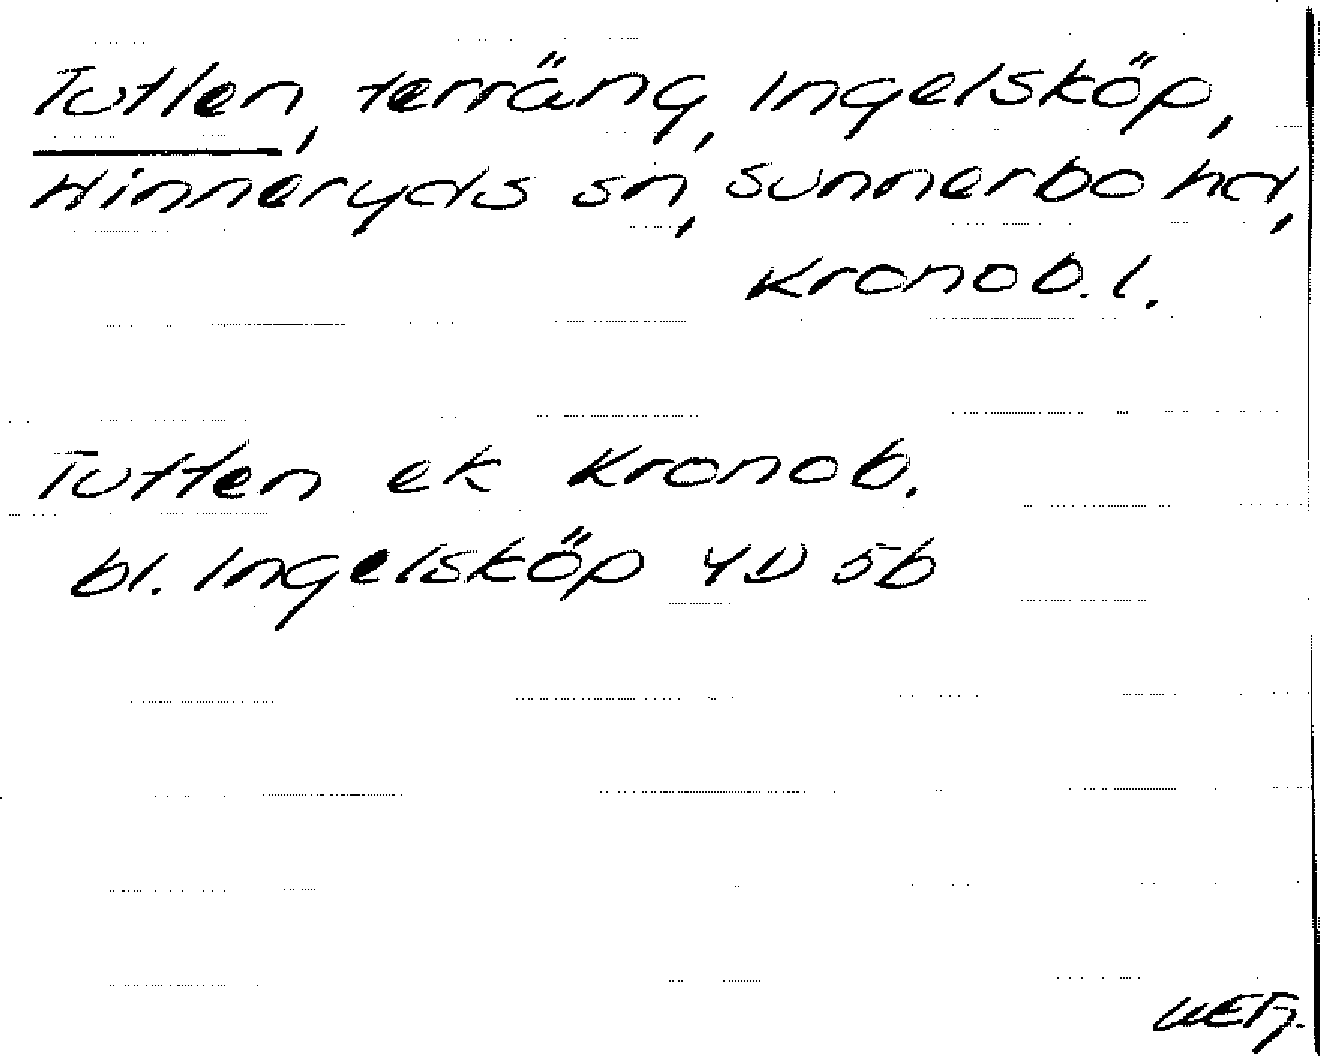 Tutlen, terräng, Ingelsköp,
Hinneryds sn, Sunnerbo hd,
Kronob. l.
Tutten ek Kronob.
bl. Ingelsköp 4D 5b